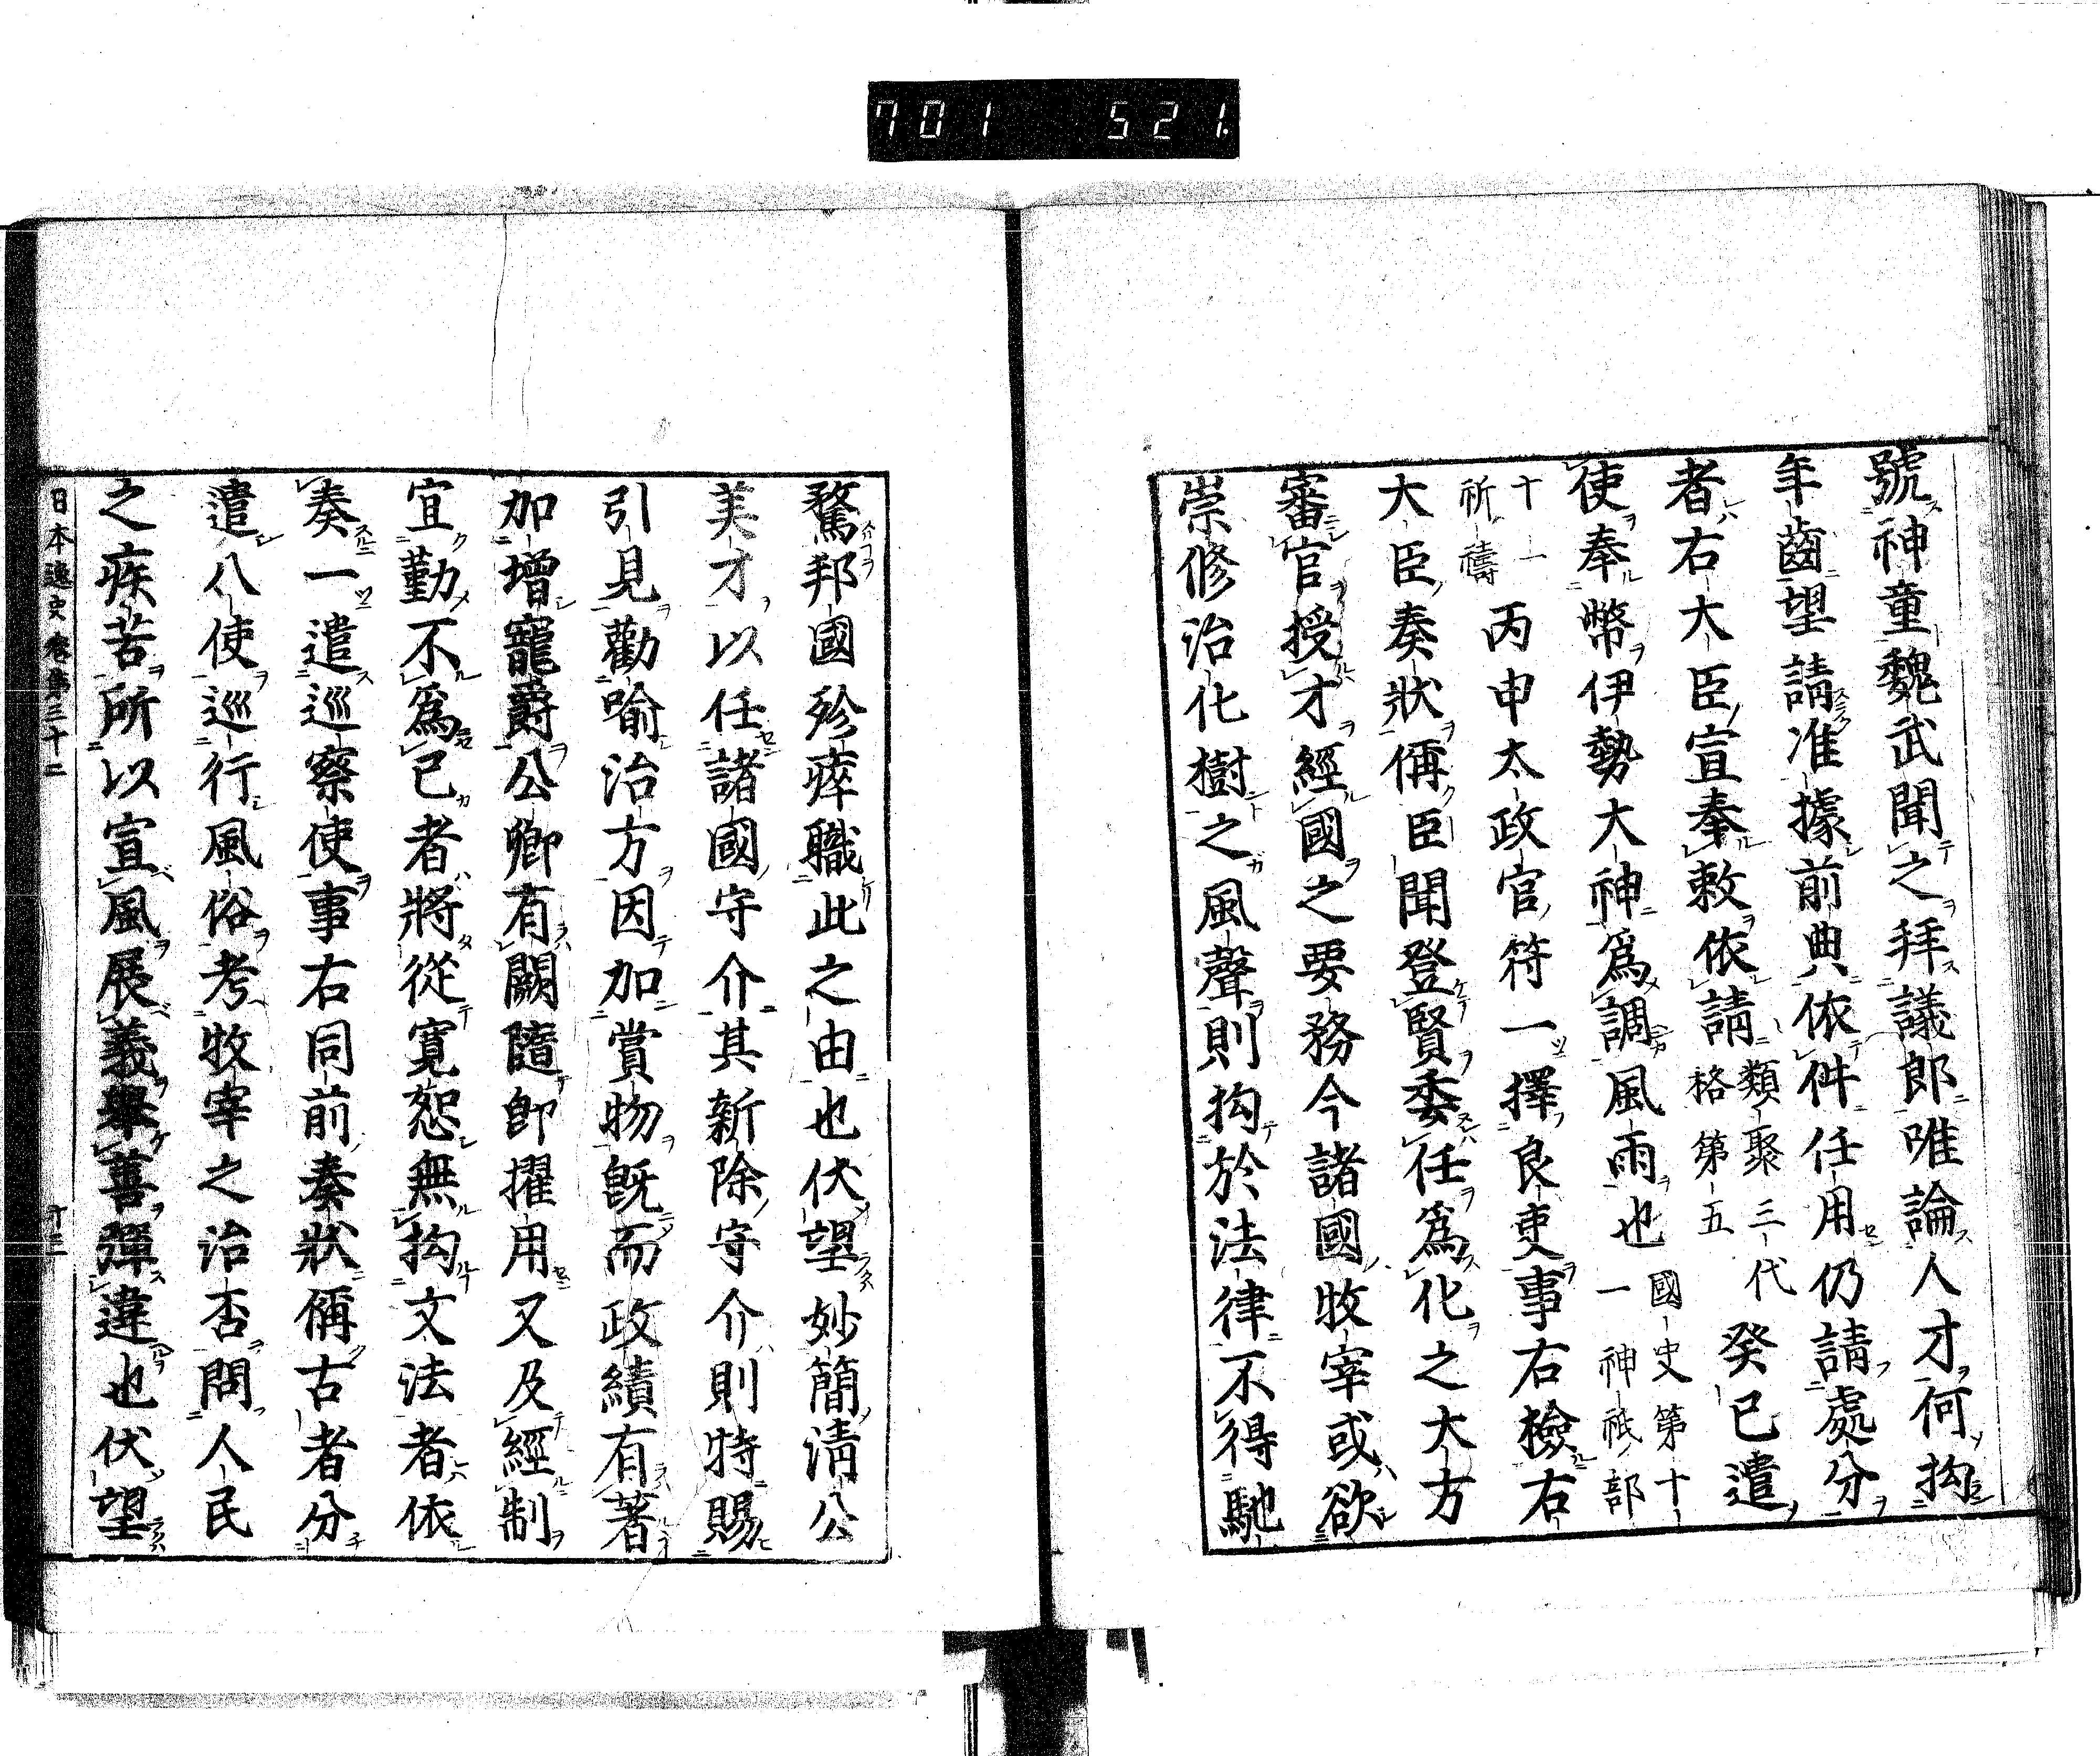 701 521
號神童魏武聞之拜議郎唯論人才何拘
年齒望請准據前典依件任用仍請處分
者右大臣宣奉敕依請類聚三代格第五癸巳遣
使奉幣伊勢大神爲調風雨也國史第十一神祇部
十一祈禱丙申太政官符一擇良吏事右檢右
大臣奏狀偁臣聞登賢委任爲化之大方
審官授才經國之要務今諸國牧宰或欲
崇修治化樹之風聲則拘於法律不得馳
騖邦國殄瘁職此之由也伏望妙簡淸公
美才以任諸國守介其新除守介則特賜
引見勸喻治方因加賞物旣而政績有著
加增寵爵公卿有闕隨卽擢用又反經制
宜勤不爲己者將從寬恕無拘文法者依
奏一遣巡察使事右同前奏狀偁古者分
遣八使巡行風俗考牧宰之治否問人民
之疾苦所以宣風展義舉善彈違也伏望
日本逸史卷第三十二 十三